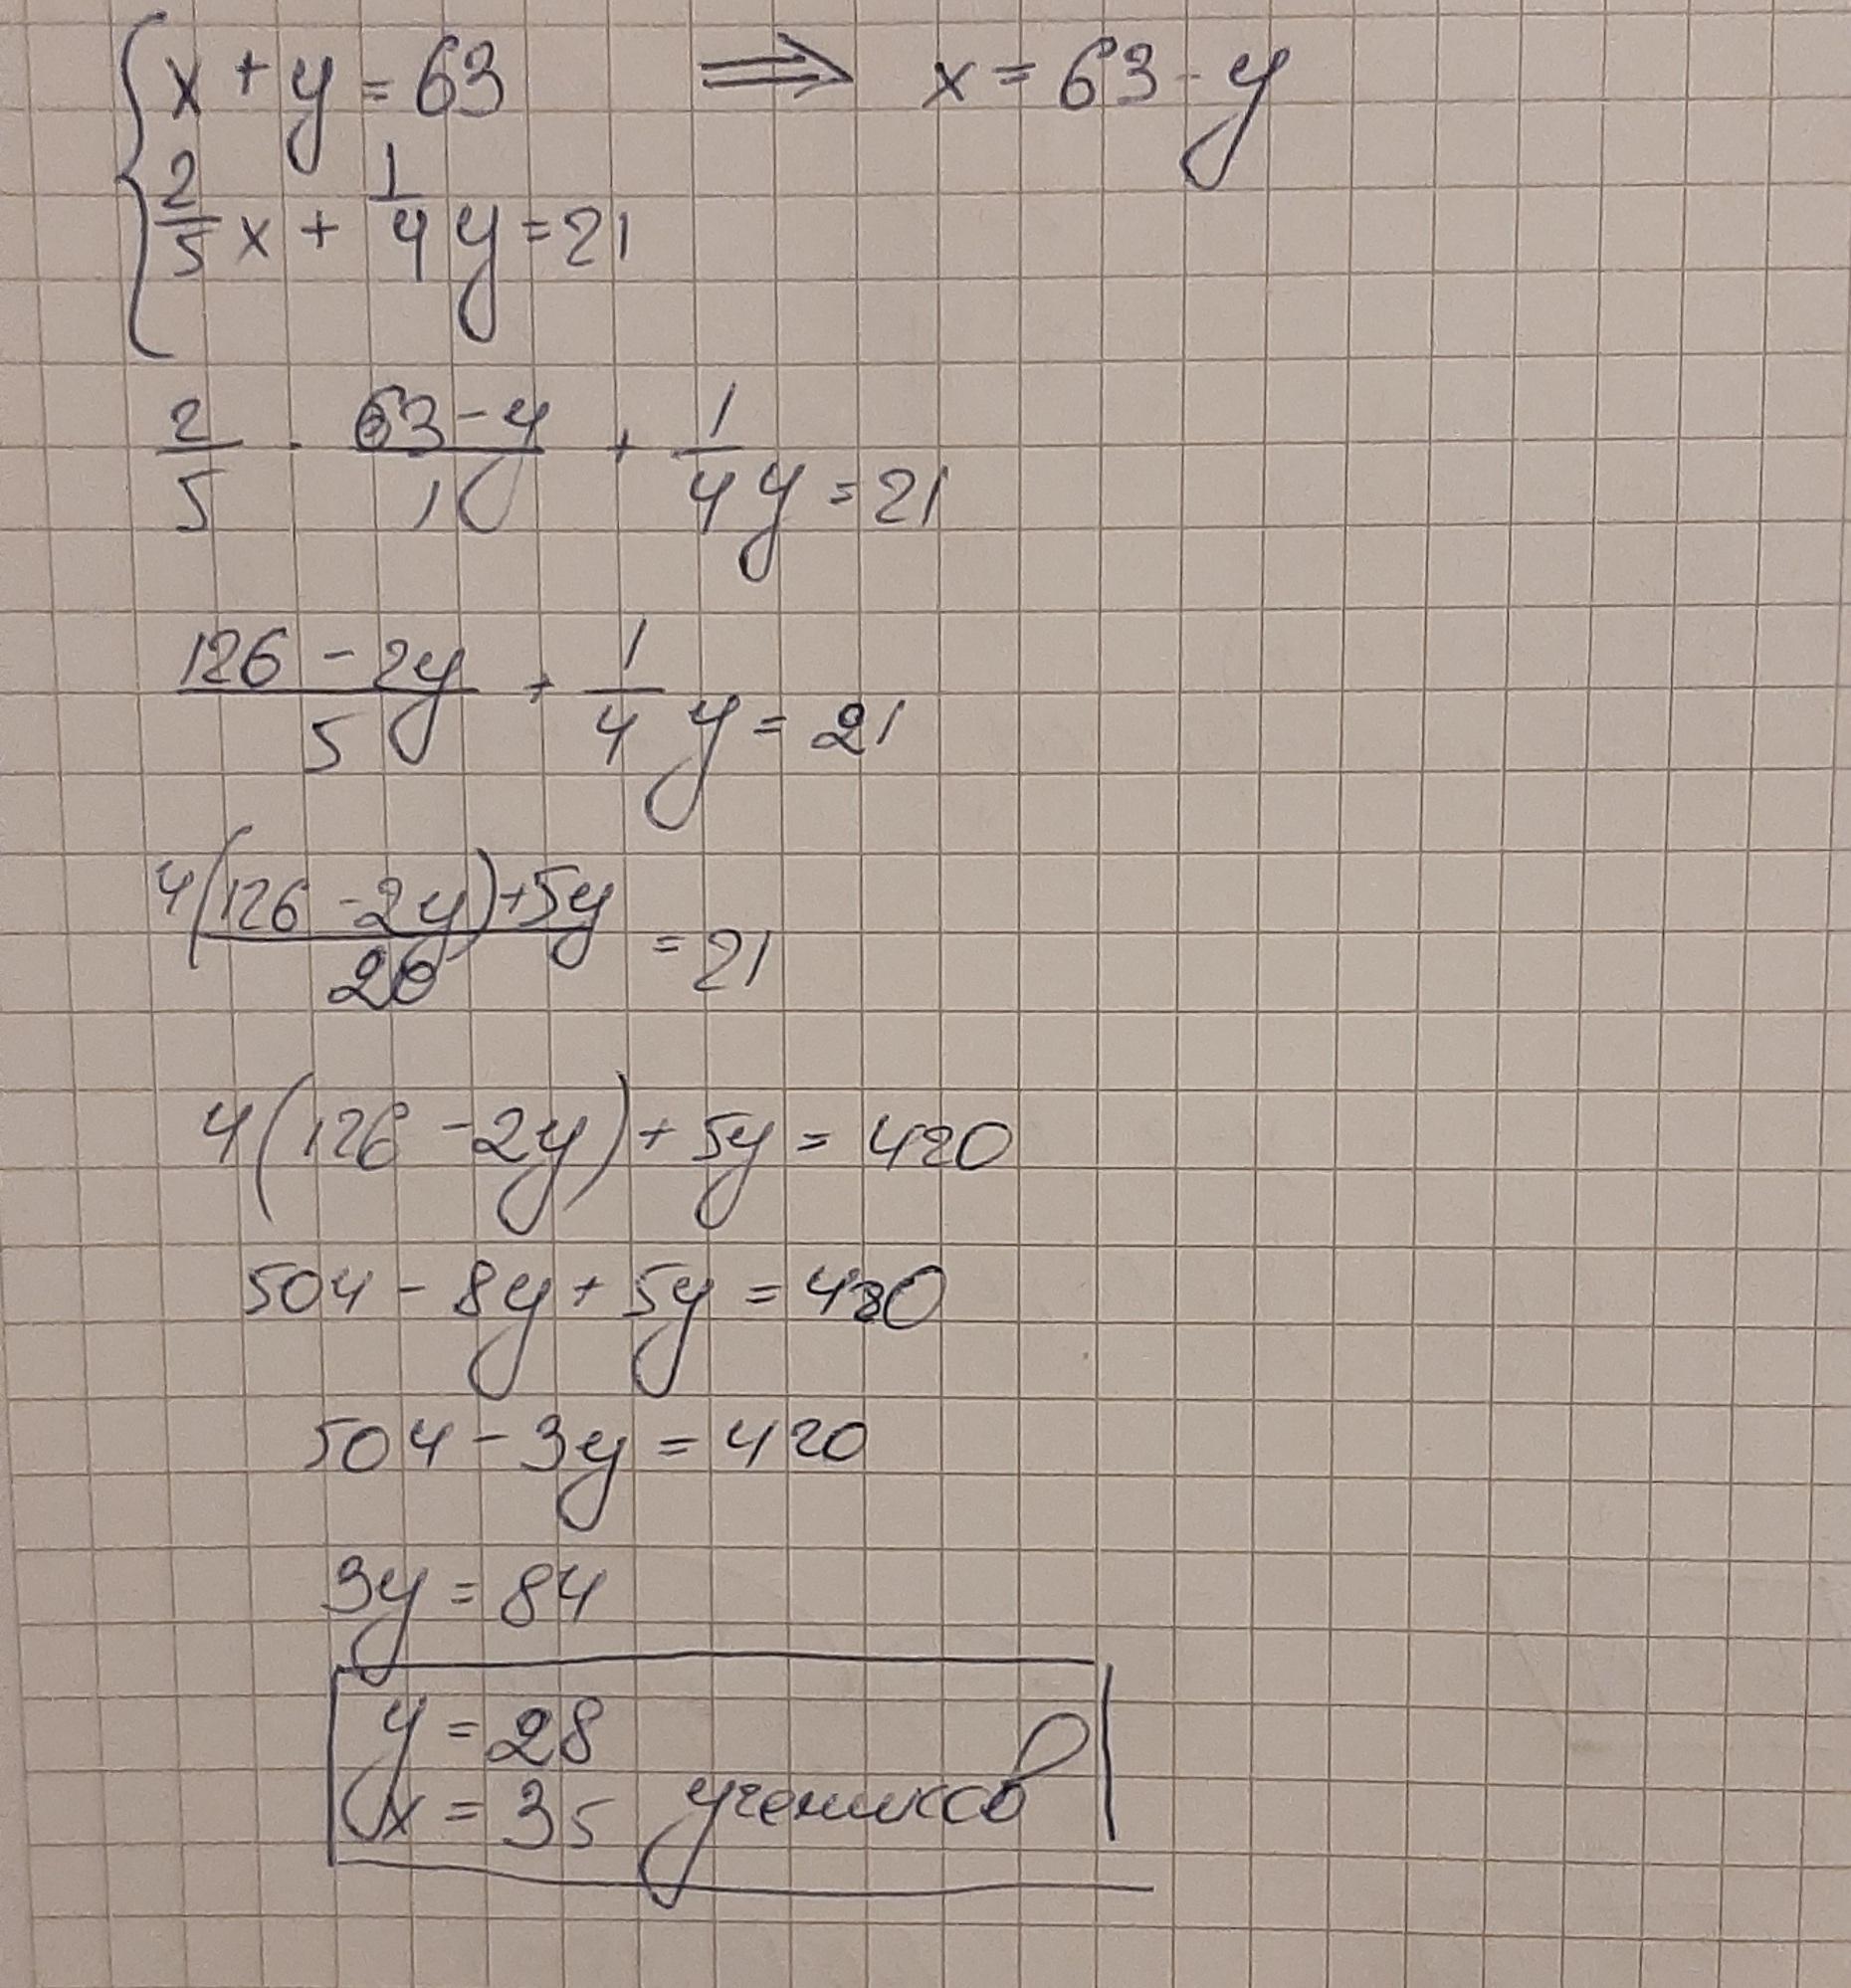 { x + y = 63 ⟹ x = 63 - y
2/5 x + 1/4 y = 21
2/5 · (63 - y)/1 + 1/4 y = 21
(126 - 2y)/5 + 1/4 y = 21
(4(126 - 2y) + 5y)/20 = 21
4(126 - 2y) + 5y = 420
504 - 8y + 5y = 420
504 - 3y = 420
3y = 84
y = 28
x = 35 учеников